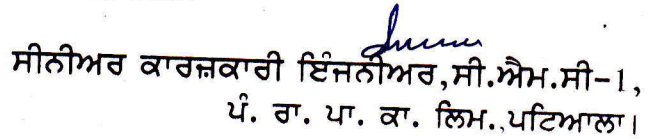 ਸੀਨੀਅਰ ਕਾਰਜ਼ਕਾਰੀ ਇੰਜਨੀਅਰ,ਸੀ.ਐਮ.ਸੀ-1,
ਪੰ. ਰਾ. ਪਾ. ਕਾ. ਲਿਮ.,ਪਟਿਆਲਾ।